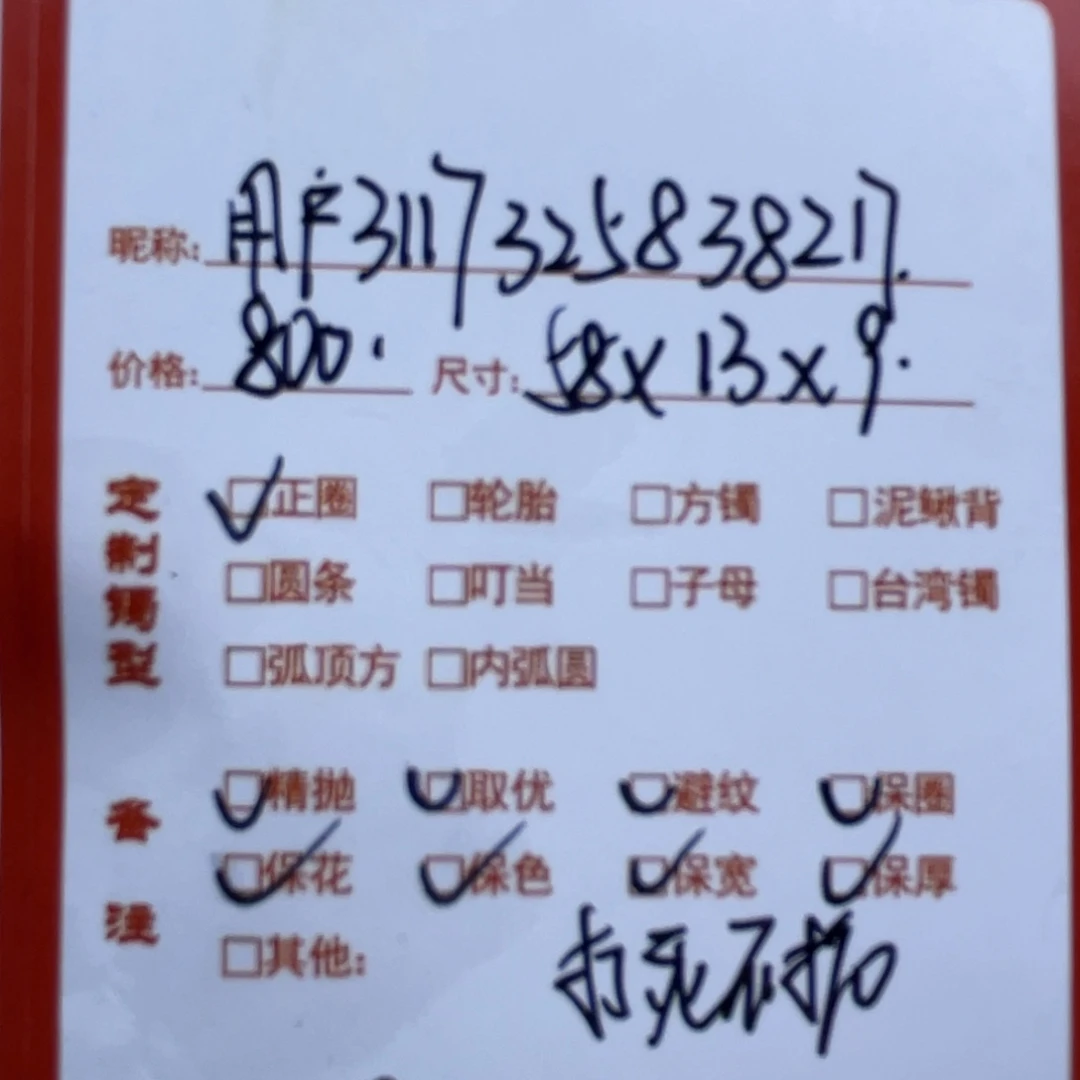 昵称: 用户3117325838217.
价格: 800. 尺寸: 58x13x9.
定制镯型
☑正圈 □轮胎 □方镯 □泥鳅背
□圆条 □叮当 □子母 □台湾镯
□弧顶方 □内弧圆
备注
☑精抛 ☑取优 ☑避纹 ☑保圈
☑保花 ☑保色 ☑保宽 ☑保厚
□其他: 打死不抛